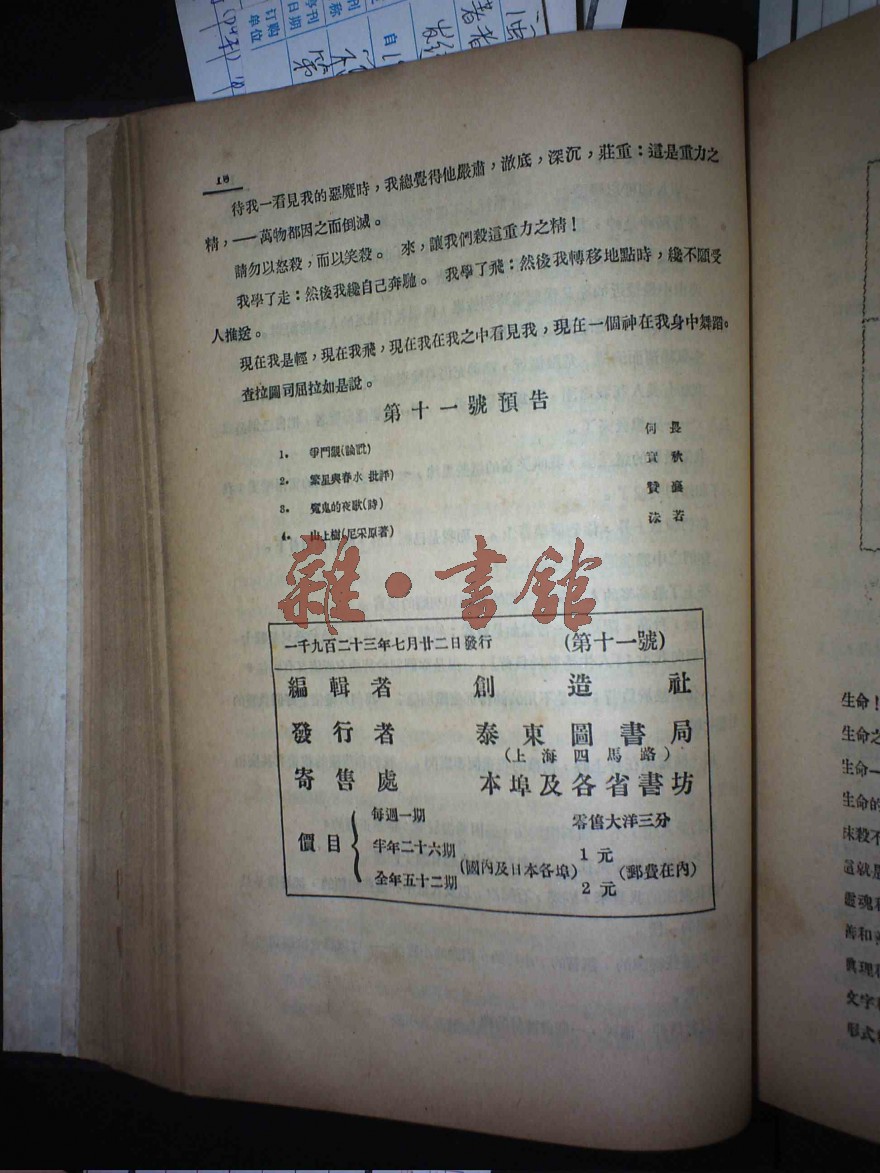 18
待我一看見我的惡魔時，我總覺得他嚴肅，澈底，深沉，莊重：這是重力之
精，——萬物都因之而倒滅。
請勿以怒殺，而以笑殺。 來，讓我們殺這重力之精！
我學了走：然後我纔自己奔馳。 我學了飛：然後我轉移地點時，纔不願受
人推送。
現在我是輕，現在我飛，現在我在我之中看見我，現在一個神在我身中舞蹈。
查拉圖司屈拉如是說。
第十一號預告
1. 爭鬥 何畏
2. 繁星與春水 批評) 實秋
3. 冤鬼的夜歌(詩)
4. 山上樹(尼采原著) 沫若
雜·書館
一千九百二十三年七月廿二日發行 (第十一號)
編輯者 創造社
發行者 泰東圖書局
(上海四馬路)
寄售處 本埠及各省書坊
價目
每週一期 零售大洋三分
半年二十六期 1元
(國內及日本各埠) (郵費在內)
全年五十二期 2元
生命！
生命之
生命一
生命的
抹殺不
這就是
靈魂和
善和
真理
文字
形式
著者
自
訂購
單位
日期